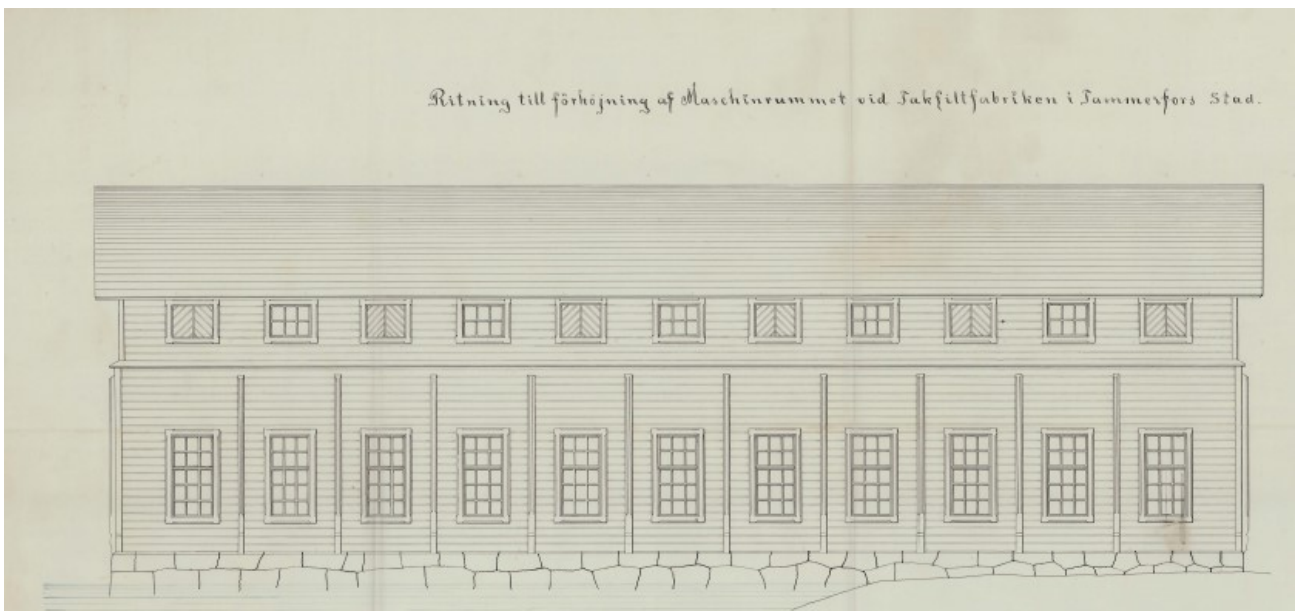 Ritning till förhöjning af Maschinrummet vid Takfiltfabriken i Tammerfors Stad.